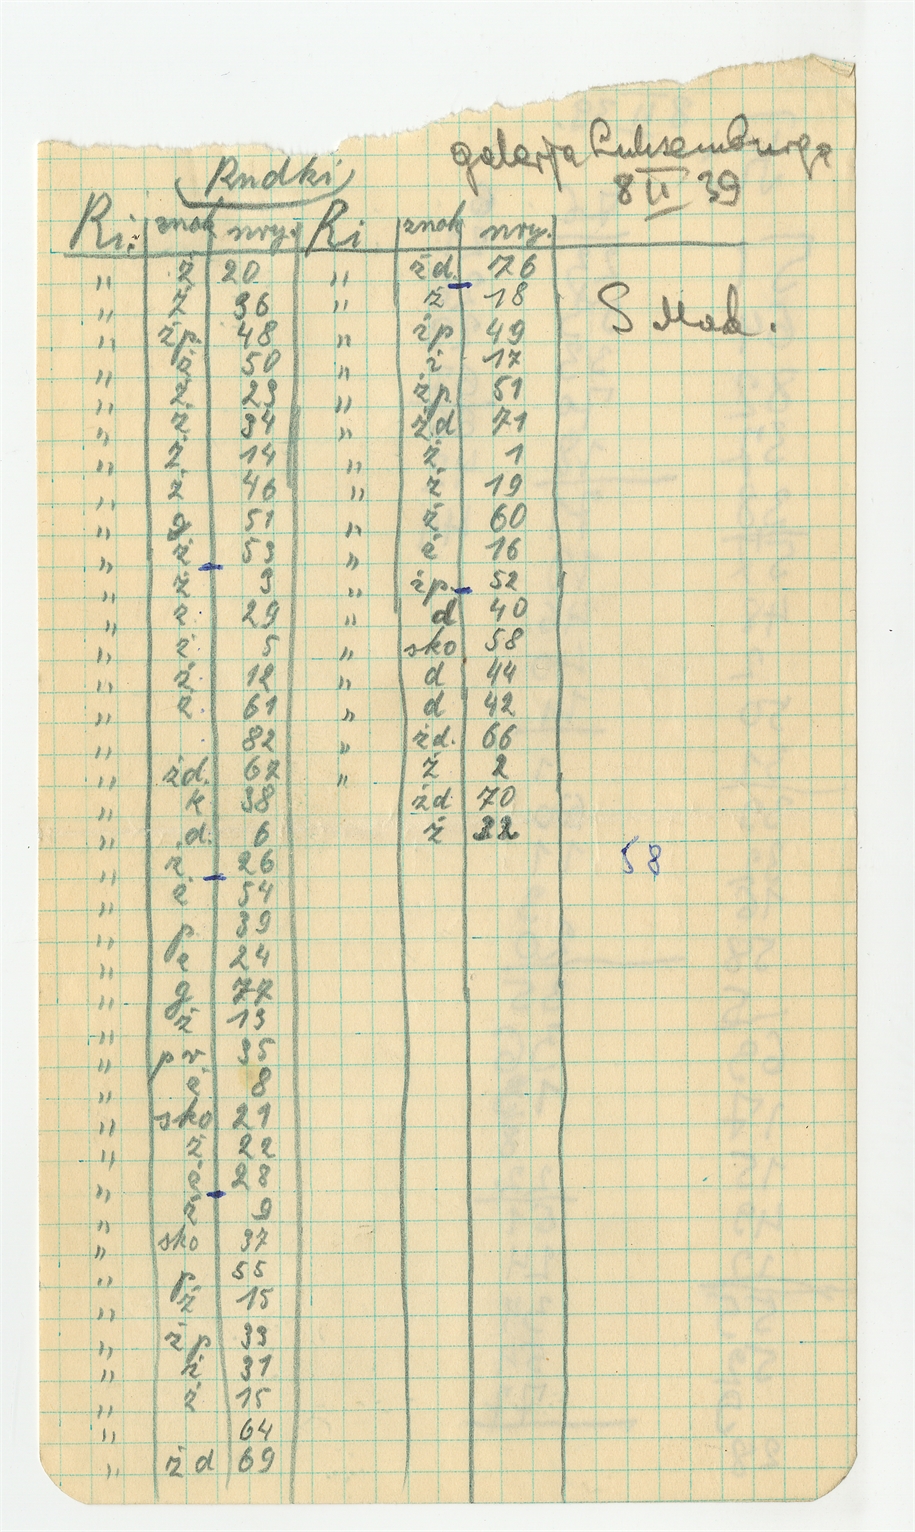 Rudki
galerja Luksemburga
8 II 39
Ri: znak nry. Ri znak nry.
" ż 20 " żd. 76
" ż 36 " ż 18
" żp. 48 " żp 49
" ż 50 " ż 17
" ż 23 " żp 51
" ż 34 " żd 71
" ż 14 " ż 1
" ż 46 " ż 19
" g 51 " ż 60
" ż 53 " ż 16
" ż 3 " żp. 52
" ż 29 " d 40
" ż 5 " sko 58
" ż 12 " d 44
" ż 61 " d 42
" 82 " żd. 66
" żd. 67 " ż 2
" k 38 żd 70
" d. 6 ż 22
" ż 26
" ż 54
" p 39
" ż 24
" g 77
" ż 13
" pr 35
" ż 8
" sko 21
" ż 22
" ż 28
" ż 9
" sko 37
" p 55
" ż 15
" żp 33
" ż 31
" ż 15
" 64
" żd 69
S Mak.
58